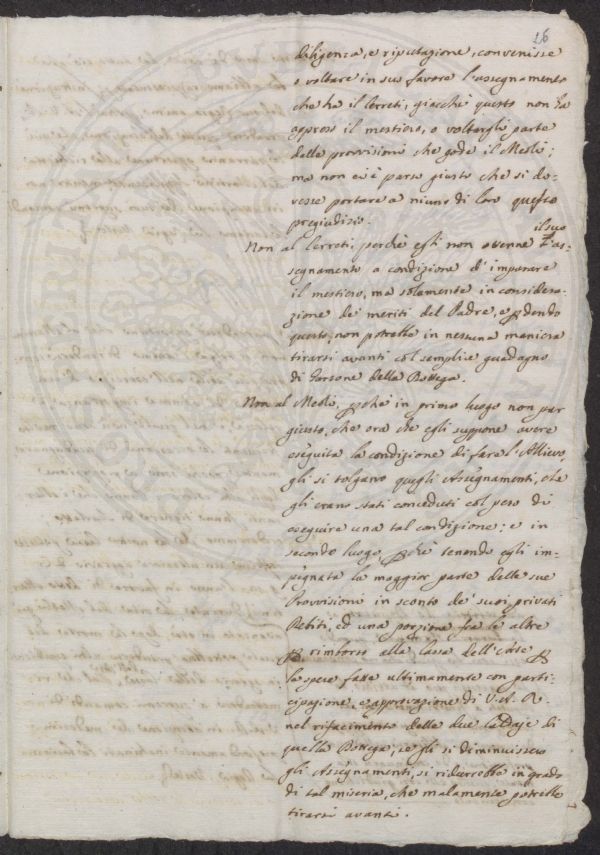 16
diligenza, e riputazione, convenisse
o voltare in suo favore l'assegnamento
che ha il Cerreti, giacchè questo non ha
appreso il mestiero, o voltargli parte
delle provvisioni che gode il Meoli;
ma non ci è parso giusto che si do-
vesse portare a niuno di loro questo
pregiudizio.
Non al Cerreti, perchè esti non ovenne il suo as-
segnamento a condizione d'imparare
il mestiero, ma solamente in considera-
zione de' meriti del Padre, e perdendo
questo, non potrebbe in nessuna maniera
tirarsi avanti col semplice guadagno
di Garzone della Bottega.
Non al Meoli, perchè in primo luogo non par
giusto, che ora che egli suppone avere
eseguita la condizione di fare l'Allievo,
gli si tolgano quegli Assegnamenti, che
gli erano stati conceduti col peso di
eseguire una tal condizione: e in
secondo luogo, perchè tenendo egli im-
pegnata la maggior parte delle sue
Provvisioni in sconto de' suoi privati
Debiti, ed una porzione fra le altre
per rimborso alla Cassa dell'
le spese fatte ultimamente con parti-
cipazione, e approvazione di V. A. R.
nel rifacimento delle due Caldaje di
quella Bottega, se gli si diminuissero
gli Assegnamenti, si ridurrebbe in grado
di tal miseria, che malamente potrebbe
tirarsi avanti.